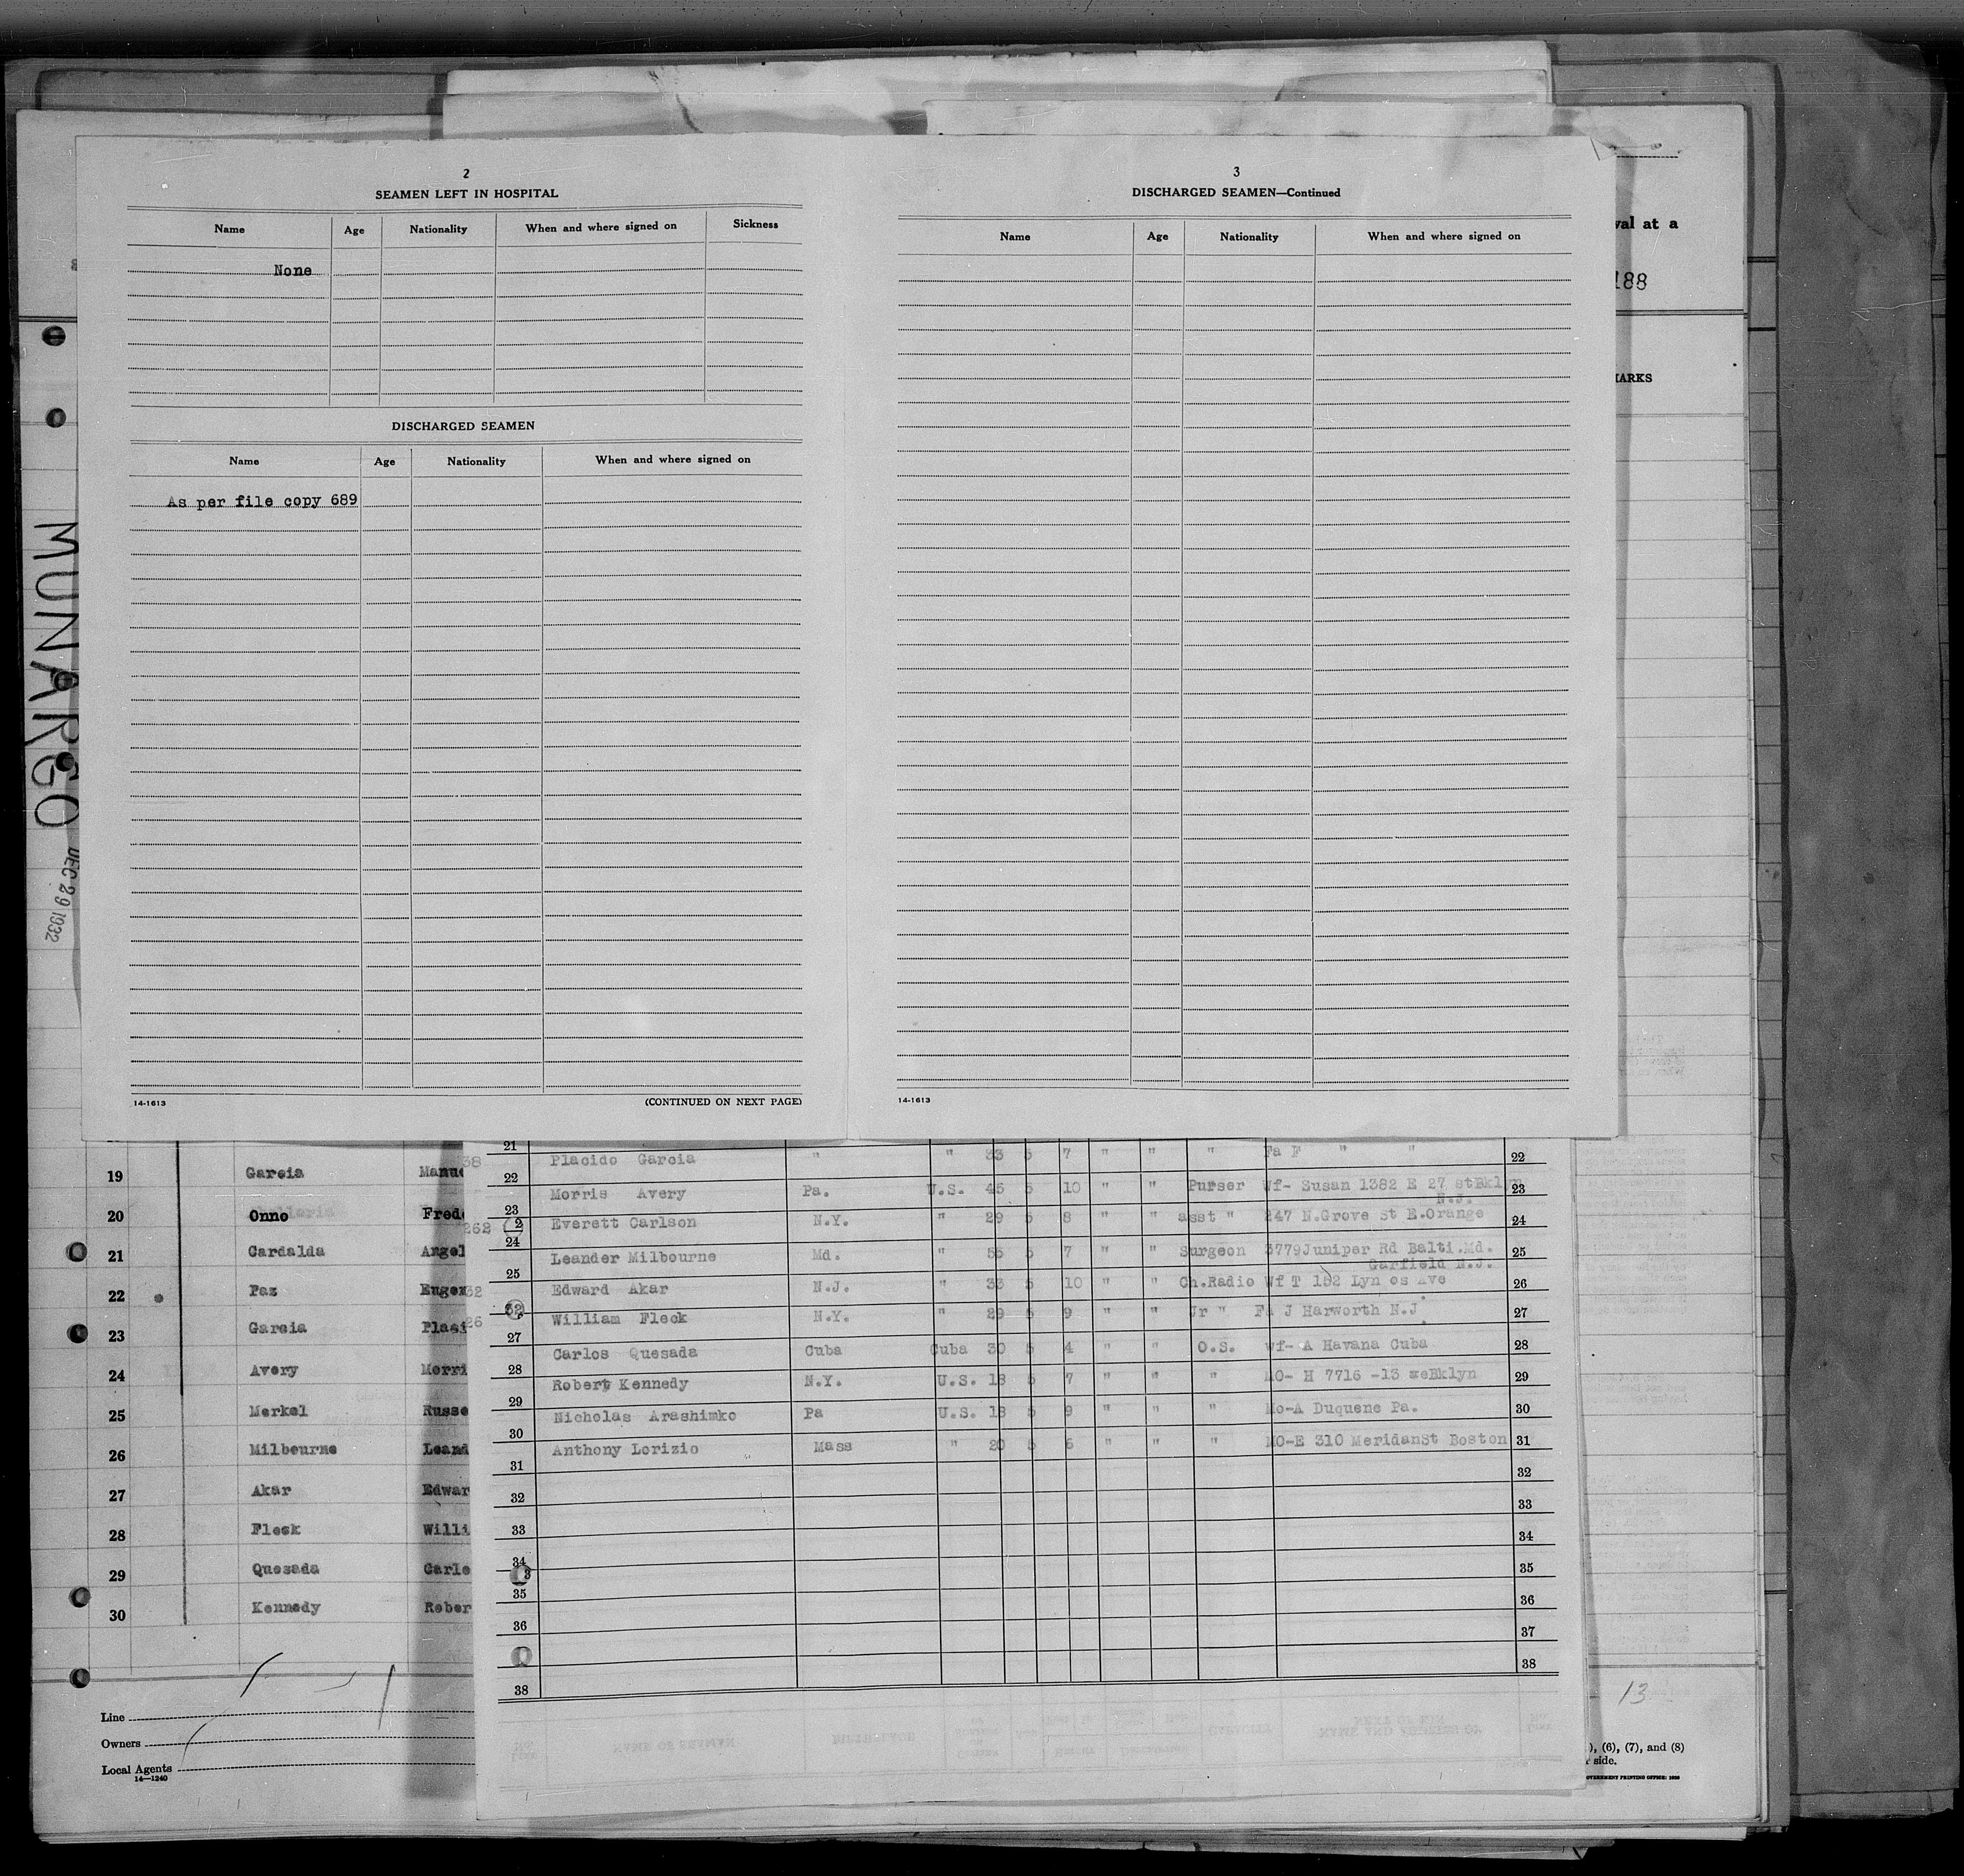 2
SEAMEN LEFT IN HOSPITAL
Name Age Nationality When and where signed on Sickness
None
DISCHARGED SEAMEN
Name Age Nationality When and where signed on
As per file copy 689
14-1613 (CONTINUED ON NEXT PAGE)
3
DISCHARGED SEAMEN—Continued
Name Age Nationality When and where signed on
14-1613
val at a
188
ARKS
MUNARGO
DEC 29 1932
19 Garcia
20 Onno
21 Cardalda Angel
22 Paz
23 Garcia
24 Avery
25 Merkel
26 Milbourne
27 Akar
28 Fleck
29 Quesada
30 Kennedy
Line
Owners
Local Agents
14—1240
21
22 Placido Garcia " " 33 5 7 " " " Fa F " " 22
23 Morris Avery Pa. U.S. 45 5 10 " " Purser Wf- Susan 1382 E 27 stBklyn 23
N.J.
24 Everett Carlson N.Y. " 29 5 8 " " asst " 247 N.Grove St E.Orange 24
25 Leander Milbourne Md. " 55 5 7 " " Surgeon 3779Juniper Rd Balti.Md. 25
Garfield N.J.
Edward Akar N.J. " 33 5 10 " " Ch.Radio Wf T 152 Lyn os Ave 26
27 William Fleck N.Y. " 29 5 9 " " Jr " Fa J Harworth N.J. 27
28 Carlos Quesada Cuba Cuba 30 5 4 " " O.S. Wf- A Havana Cuba 28
29 Robert Kennedy N.Y. U.S. 18 5 7 " " " MO- H 7716 -13 Bklyn 29
30 Nicholas Arashimko Pa U.S. 18 5 9 " " " Mo-A Duquene Pa. 30
31 Anthony Lorizio Mass " 20 5 6 " " " MO-E 310 MeridanSt Boston 31
32 32
33 33
34 34
35 35
36 36
37
38 38
13
), (6), (7), and (8)
side.